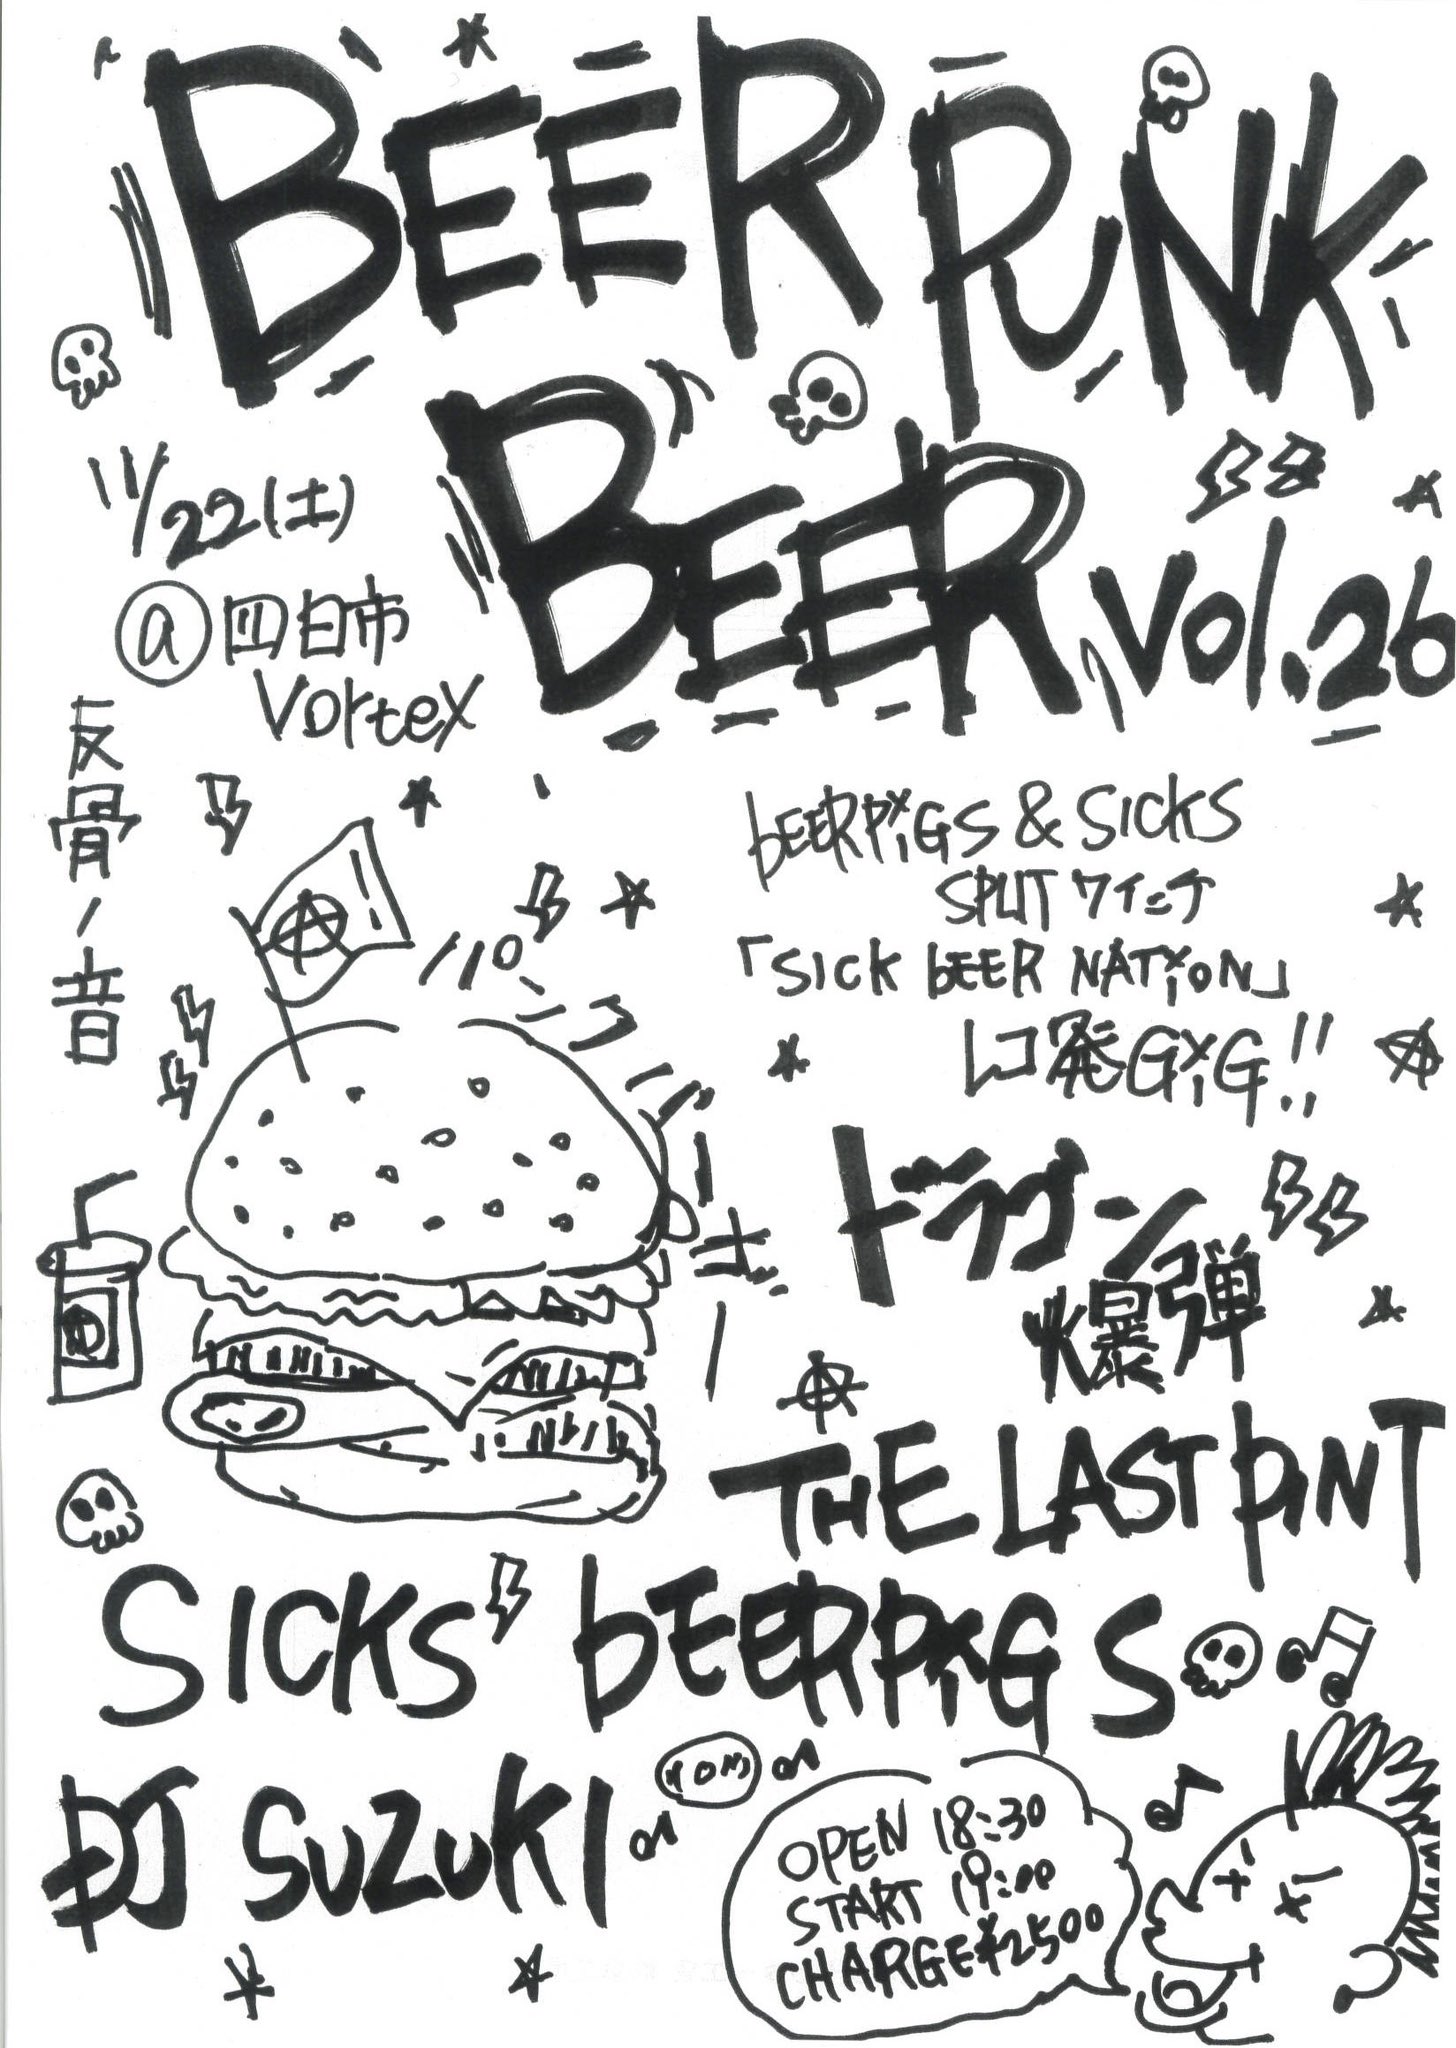 BEER PUNK
BEER vol.26
11/22(土)
@四日市
Vortex
反骨ノ音
bEERPiGS & SICKS
SPLIT 7インチ
「SICK bEER NATiON」
レコ発GiG!!
パンクバーガー
ドラゴン
爆弾
THE LAST PiNT
SICKS bEERPiGS
DJ SUZUKI
OPEN 18:30
START 19:00
CHARGE ¥2500